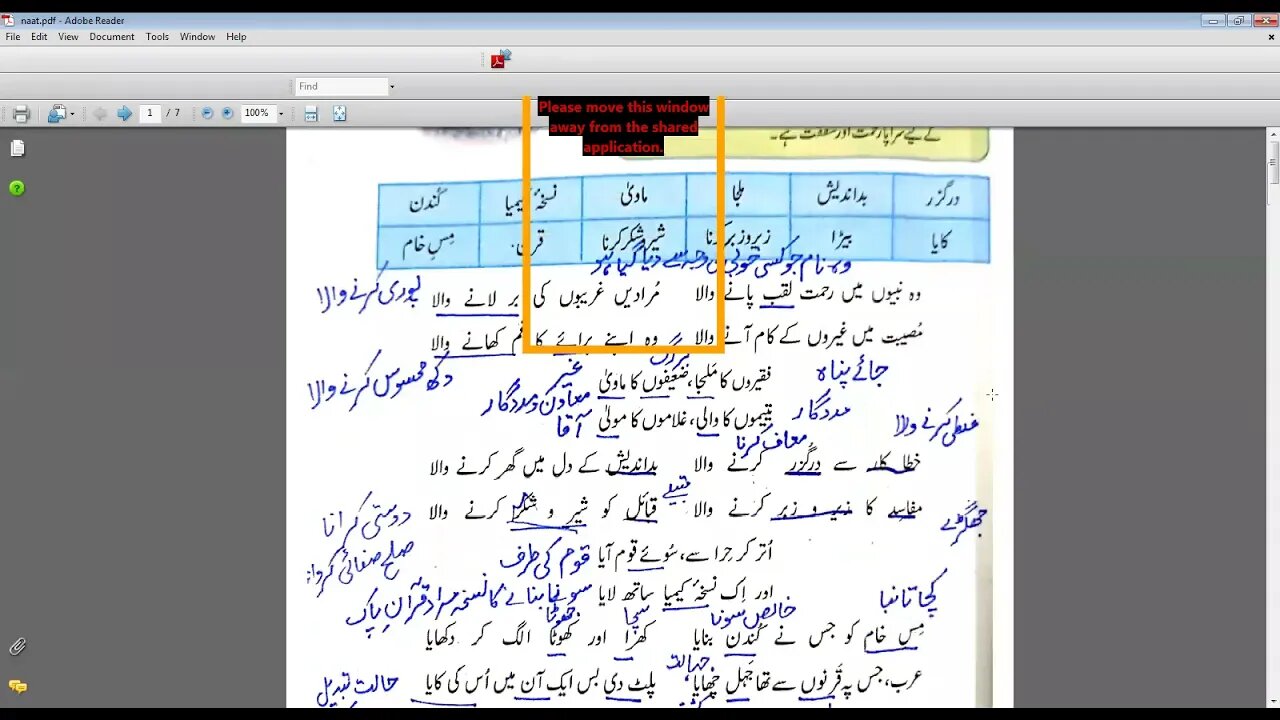 naat.pdf - Adobe Reader
File Edit View Document Tools Window Help
Find
1 / 7 100%
Please move this window
away from the shared
application.
کے لیے سراپا رحمت اور شفقت ہے۔
درگزر بداندیش ملجا ماویٰ نسخۂ کیمیا کُندن
کایا بیڑا زیروزبر کرنا شیروشکر کرنا قرن مِسِ خام
وہ نام جو کسی خوبی کی وجہ سے دیا گیا ہو
وہ نبیوں میں رحمت لقب پانے والا مُرادیں غریبوں کی بر لانے والا پوری کرنے والا
مُصیبت میں غیروں کے کام آنے والا وہ اپنے پرائے کا غم کھانے والا
دکھ محسوس کرنے والا غیر
فقیروں کا مَلجا، ضعیفوں کا ماویٰ جائے پناہ
معاون و مددگار
یتیموں کا والی، غلاموں کا مولیٰ مددگار آقا
غلطی کرنے والا معاف کرنا
خطا کار سے درگزر کرنے والا بداندیش کے دل میں گھر کرنے والا
قبیلے
مفاسد کا زیر و زبر کرنے والا قبائل کو شیر و شکر کرنے والا
جھگڑے دوستی کرانا
صلح صفائی کروانا
اُتر کر حِرا سے، سُوئے قوم آیا قوم کی طرف
اور اِک نسخۂ کیمیا ساتھ لایا سونا بنانے کا نسخہ مراد قرآنِ پاک
کچا تانبا خالص سونا سچا جھوٹا
مِسِ خام کو جس نے کُندن بنایا کھرا اور کھوٹا الگ کر دکھایا
جہالت
عرب، جس پہ قَرنوں سے تھا جَہل چھایا پلٹ دی بس ایک آن میں اُس کی کایا حالت تبدیل